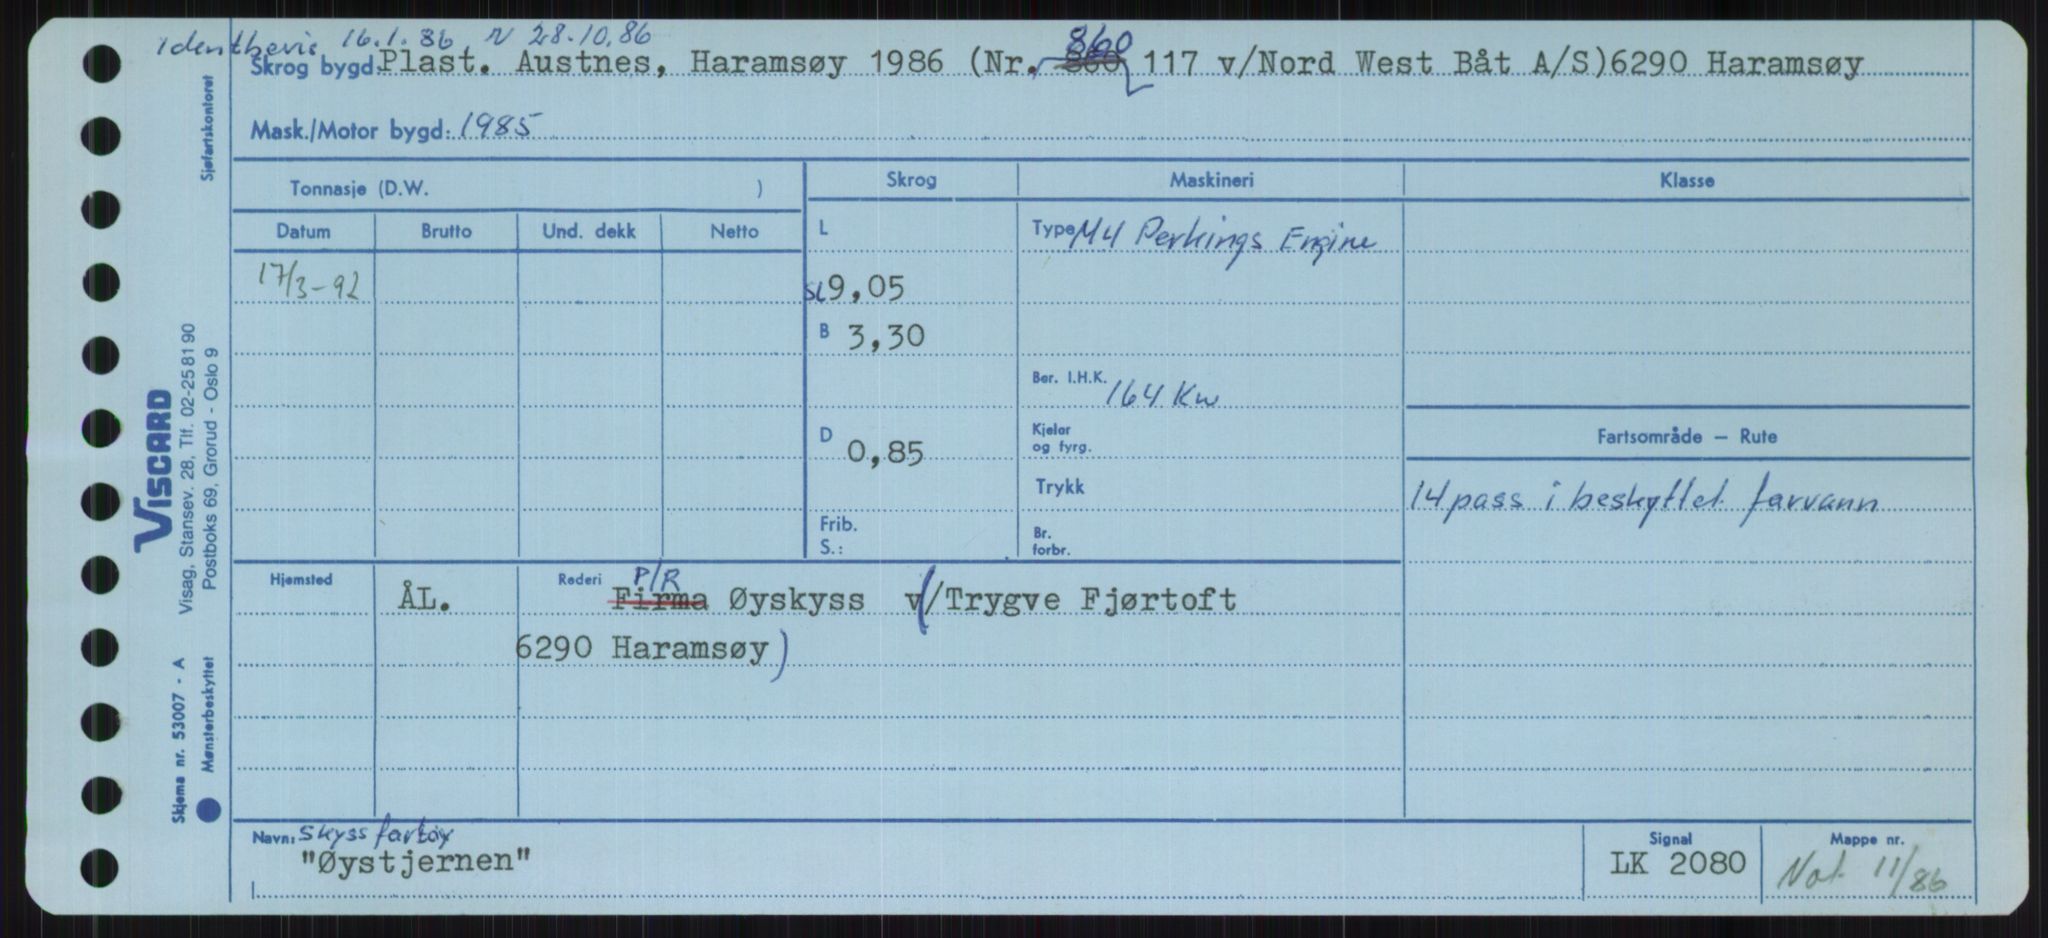 Identbevis 16.1.86 N 28.10.86
860
Skrog bygd: Plast. Austnes, Haramsøy 1986 (Nr. 860 117 v/Nord West Båt A/S)6290 Haramsøy
Mask./Motor bygd: 1985
Tonnasje (D.W. ) Skrog Maskineri Klasse
Datum Brutto Und. dekk Netto L Type M4 Perkings Engine
17/3-92 SL 9,05
B 3,30
Ber. I.H.K. 164 Kw
D 0,85 Kjeler og fyrg. Fartsområde – Rute
Trykk 14 pass i beskyttet farvann
Frib. S.: Br. forbr.
Hjemsted ÅL. Rederi P/R Firma Øyskyss v(/Trygve Fjørtoft
6290 Haramsøy)
Navn: Skyssfartøy Signal Mappe nr.
"Øystjernen" LK 2080 Not 11/86
Sjøfartskontoret
VISCARD
Visag, Stansev. 28, Tlf. 02-25 81 90
Postboks 69, Grorud - Oslo 9
Skjema nr. 53007 - A
Mønsterbeskyttet